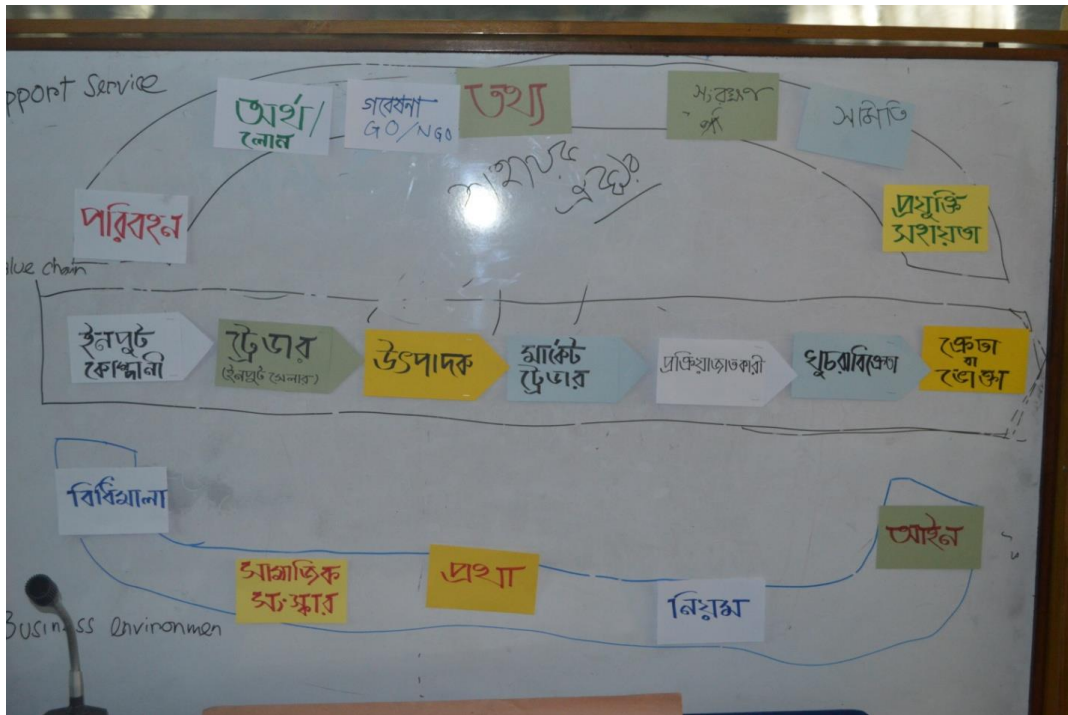 pport Service
অর্থ/
লোন
গবেষনা
GO/NGO
তথ্য
সংরক্ষণ
সমিতি
পরিবহন
প্রযুক্তি
সহায়তা
alue chain
ইনপুট
কোম্পানী
ট্রেডার
(ইনপুট সেলার)
উৎপাদক
মার্কেট
ট্রেডার
প্রক্রিয়াজাতকারী
খুচরাবিক্রেতা
ক্রেতা
বা
ভোক্তা
বিধিমালা
সামাজিক
সংস্কার
প্রথা
নিয়ম
আইন
Business environmen